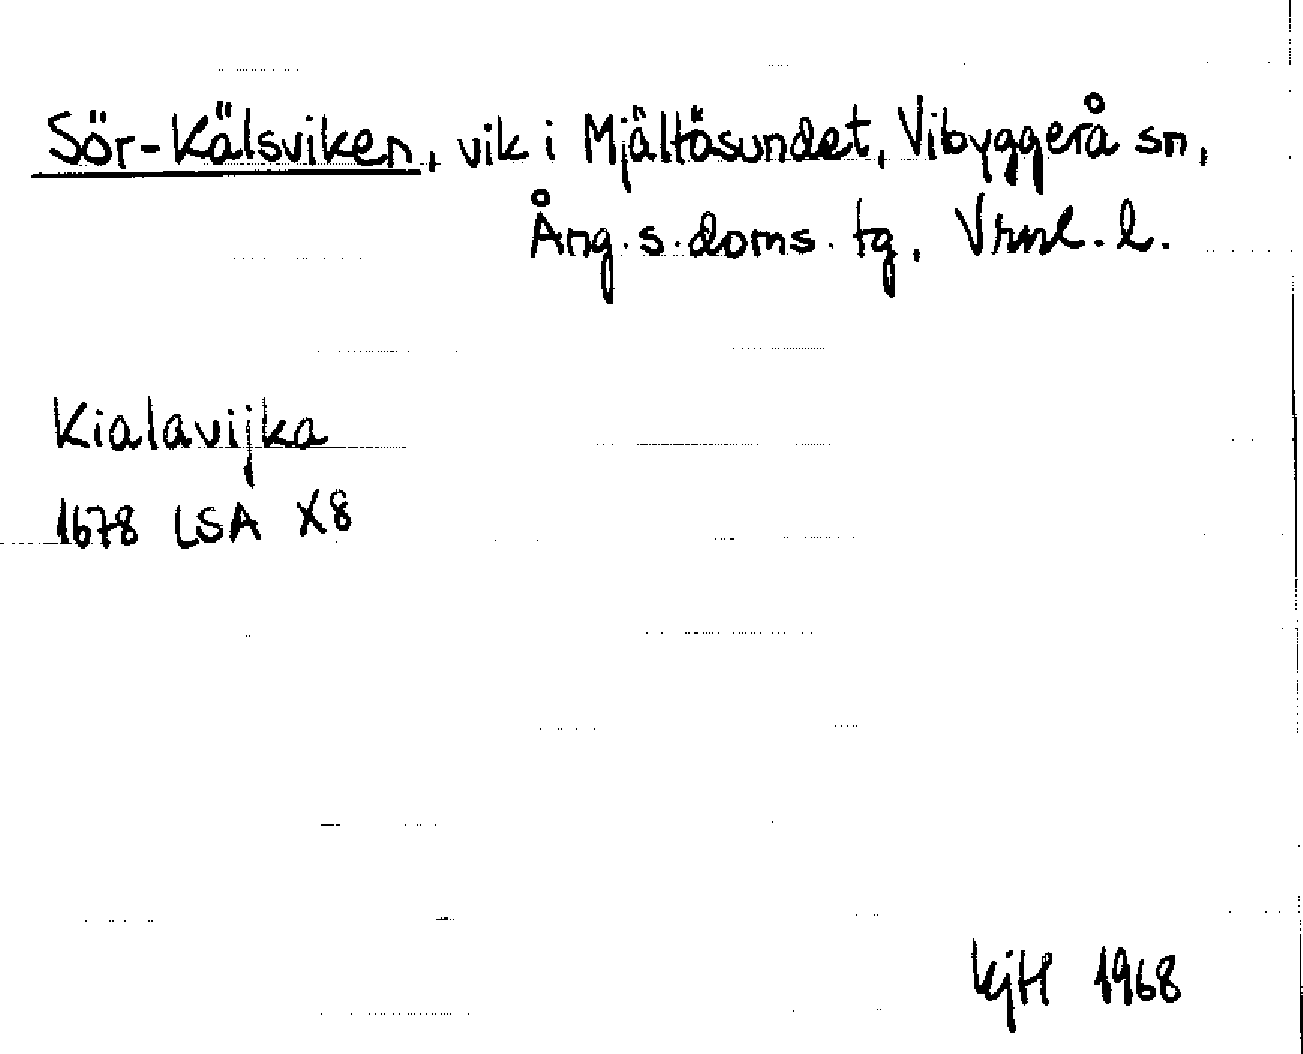 Sör-Kälsviken, vik i Mjältösundet, Vibyggerå sn,
Ång. s. doms. tg, Vrnl. l.
Kialavijka
1678 LSA X8
kjH 1968